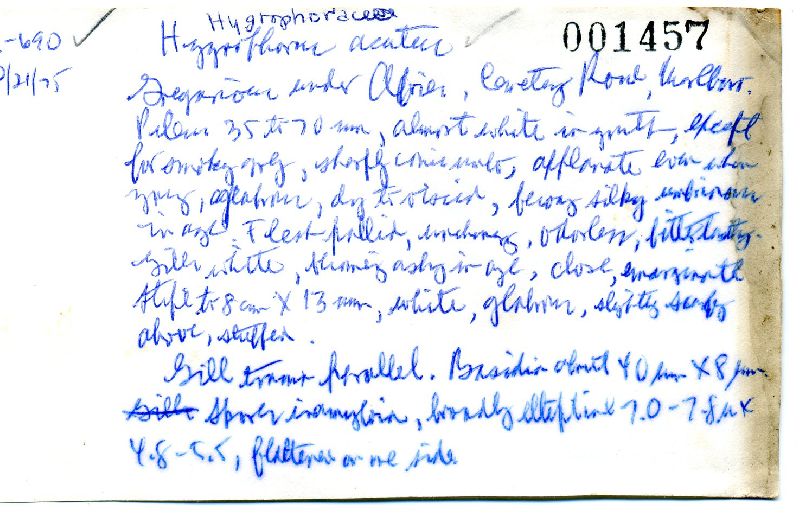 Hygrophoraceae
-690 ✓ Hygrophorus acutus ✓ 001457
/21/75 Gregarious under Abies, Cemetery Road, Marlboro.
Pileus 35 to 70 mm, almost white in youth, except
for smoky grey, sharply conic umbo, applanate even when
young, glabrous, dry to viscid, silky
in age. Flesh pallid, unchanging, odorless, bitter tasting.
Gills white, becoming ashy in age, close, emarginate
Stipe to 8 cm X 13 mm, white, glabrous, slightly scurfy
above, stuffed.
Gill trama parallel. Basidia about 40 µm X 8 µm.
Spores inamyloid, broadly elliptical 7.0-7.8 µ x
4.8-5.5, flattened on one side.